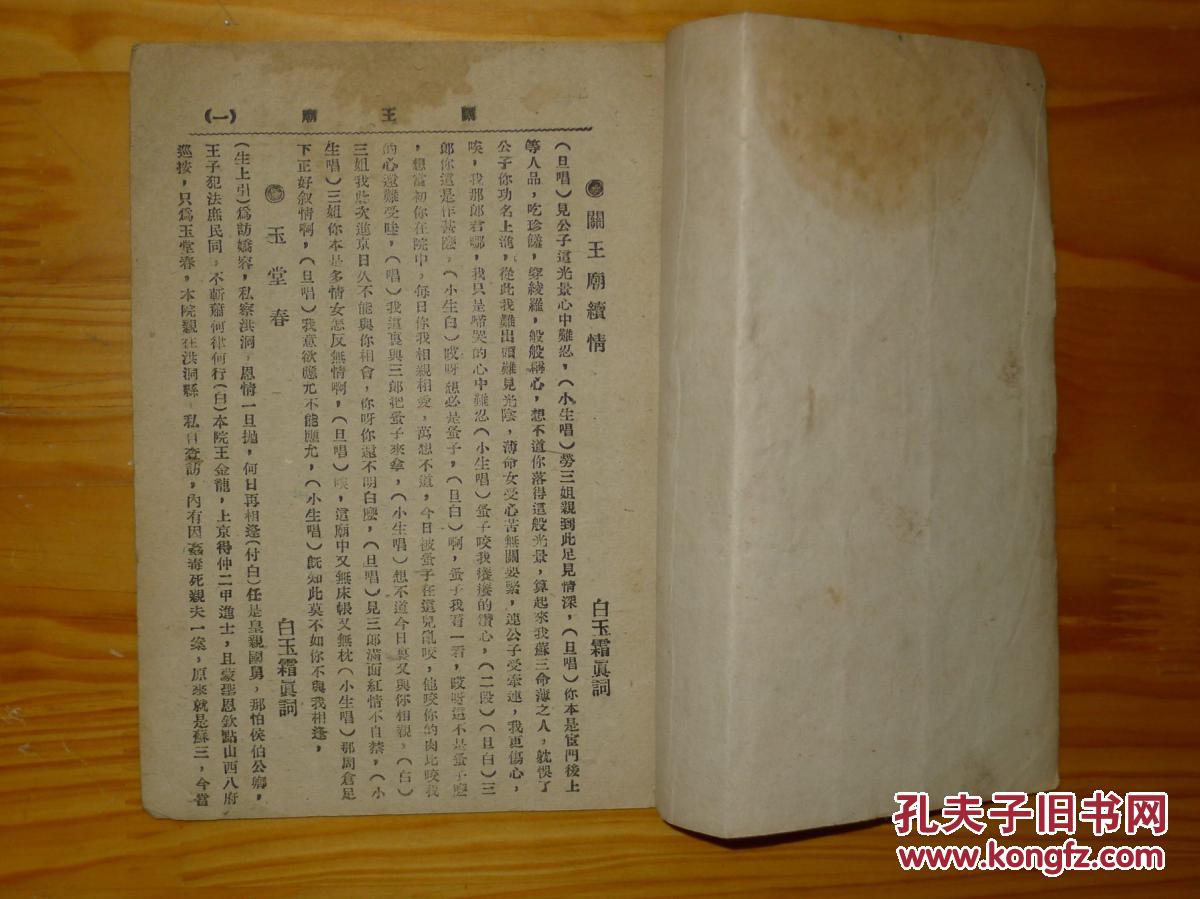 關王廟 (一)
關王廟續情
白玉霜眞詞
(旦唱)見公子這光景心中難忍,(小生唱)勞三姐親到此足見情深,(旦唱)你本是宦門後上
等人品,吃珍饈,穿綾羅,般般稱心,想不道你落得這般光景,算起來我蘇三命薄之人,躭悞了
公子你功名上進,從此我難出頭難見光陰,薄命女受心苦無關要緊,連公子受牽連,我更傷心,
唉,我那郎君哪,我只是啼哭的心中難忍(小生唱)蚤子咬我摟摟的鑽心,(二段)(旦白)三
郎你這是作甚麼,(小生白)哎呀想必是蚤子,(旦白)啊,蚤子我看一看,哎呀這不是蚤子麼
,想當初你在院中,每日你我相親相愛,萬想不道,今日被蚤子在這兒亂咬,他咬你的肉比咬我
的心還難受哇,(唱)我這裏與三郎把蚤子來拿,(小生唱)想不道今日裏又與你相親,(白)
三姐我此次進京日久不能與你相會,你呀你還不明白麼,(旦唱)見三郎滿面紅情不自禁,(小
生唱)三姐你本是多情女怎反無情啊,(旦唱)唉,這廟中又無床帳又無枕(小生唱)那周倉足
下正好叙情啊,(旦唱)我意欲應尤不能應尤,(小生唱)旣如此莫不如你不與我相逢,
玉堂春
白玉霜眞詞
(生上引)爲訪嬌容,私察洪洞,恩情一旦抛,何日再相逢(付白)任是皇親國舅,那怕侯伯公卿,
王子犯法庶民同,不斬蕭何律何行(白)本院王金龍,上京得仲二甲進士,且蒙聖恩欽點山西八府
巡按,只爲玉堂春,本院親在洪洞縣,私自查訪,內有因姦毒死親夫一案,原來就是蘇三,今當
孔夫子旧书网
www.kongfz.com